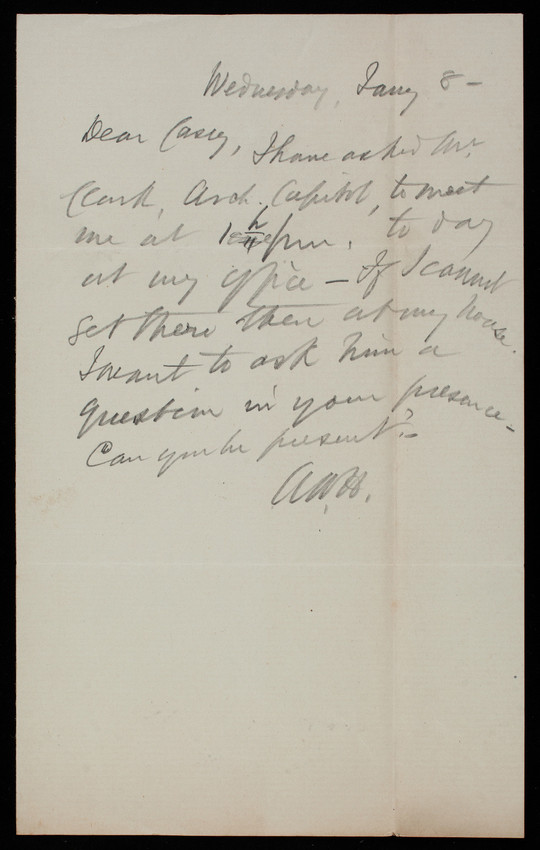 Wednesday, Jany 8 -
Dear Casey,
I have asked Mr.
Clark, Arch. Capitol, to meet
me at pm, to day
at my office - If I cannot
get there then at my house.
I want to ask him a
question in your presence -
Can you be present? -